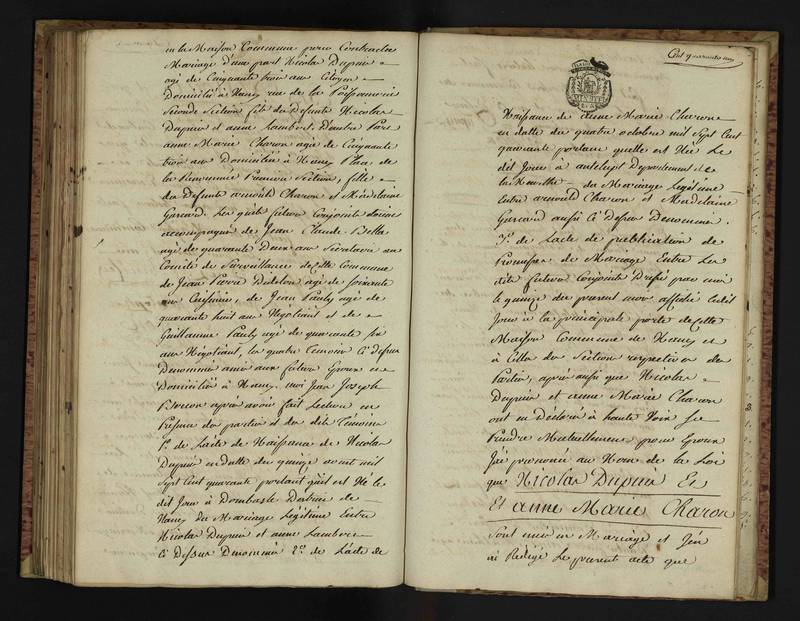 en la Maison Commune pour Contracter
Mariage d'une part Nicolas Dupuir
agé de Cinquante trois ans Citoyen
Domicilié à Nancy rue de la Poissonnerie
Seconde Section fils des Defunts Nicolas
Dupuir et anne Lambert. D'autre Part
anne Marie Charon agée de Cinquante
trois ans Domiciliée à Nancy Place de
la Premiere Section, fille
des Defunts arnould Charon et Madelaine
Gerard. Les quels futurs Conjoints étoient
accompagnés de Jean Claude Bella
agé de quarante Deux ans Secretaire au
Comité de Surveillance de Cette Commune
de Jean Pierre Didelon agé de soixante
ans Cuisinier, de Jean Pauly agé de
quarante huit ans Négotiant et de
Guillaume Pauly agé de quarante six
ans Négotiant, les quatre temoins Ci dessus
Denommés amis aux futurs Epoux et
Domiciliés à Nancy. moi Jean Joseph
après avoir fait Lecture en
Présence des parties et des dits témoins
1°. de L'acte de Naissance de Nicolas
Dupuir en datte du quinze aoust mil
sept Cent quarante portant qu'il est Né le
dit Jour à Dombasle District de
Nancy du Mariage Légitime Entre
Nicolas Dupuir et anne Lambert
Ci Dessus Denommés 2°. de L'acte de
Cent quarante un
Naissance de anne Marie Charon
en datte du quatre octobre mil Sept Cent
quarante portant quelle est Née Le
dit Jour à Département de
la Meurthe du Mariage Légitime
Entre arnould Charon et Madelaine
Gerard aussi Ci Dessus Denommés.
3°. de L'acte de publication de
Promesses de Mariage Entre Les
dits futurs Conjoints Dressé par moi
le quinze du present mois affiché ledit
Jour à la principale porte de Cette
Maison Commune de Nancy et
à Celles des Sections respectives des
Parties, après aussi que Nicolas
Dupuir et anne Marie Charon
ont eu Déclaré à haute Voix Se
Prendre Mutuellement pour Epoux
J'ai prononcé au Nom de la Loi
que Nicolas Dupuir Et
Et anne Marie Charon
Sont unis en Mariage et J'en
ai Redigé Le present acte que